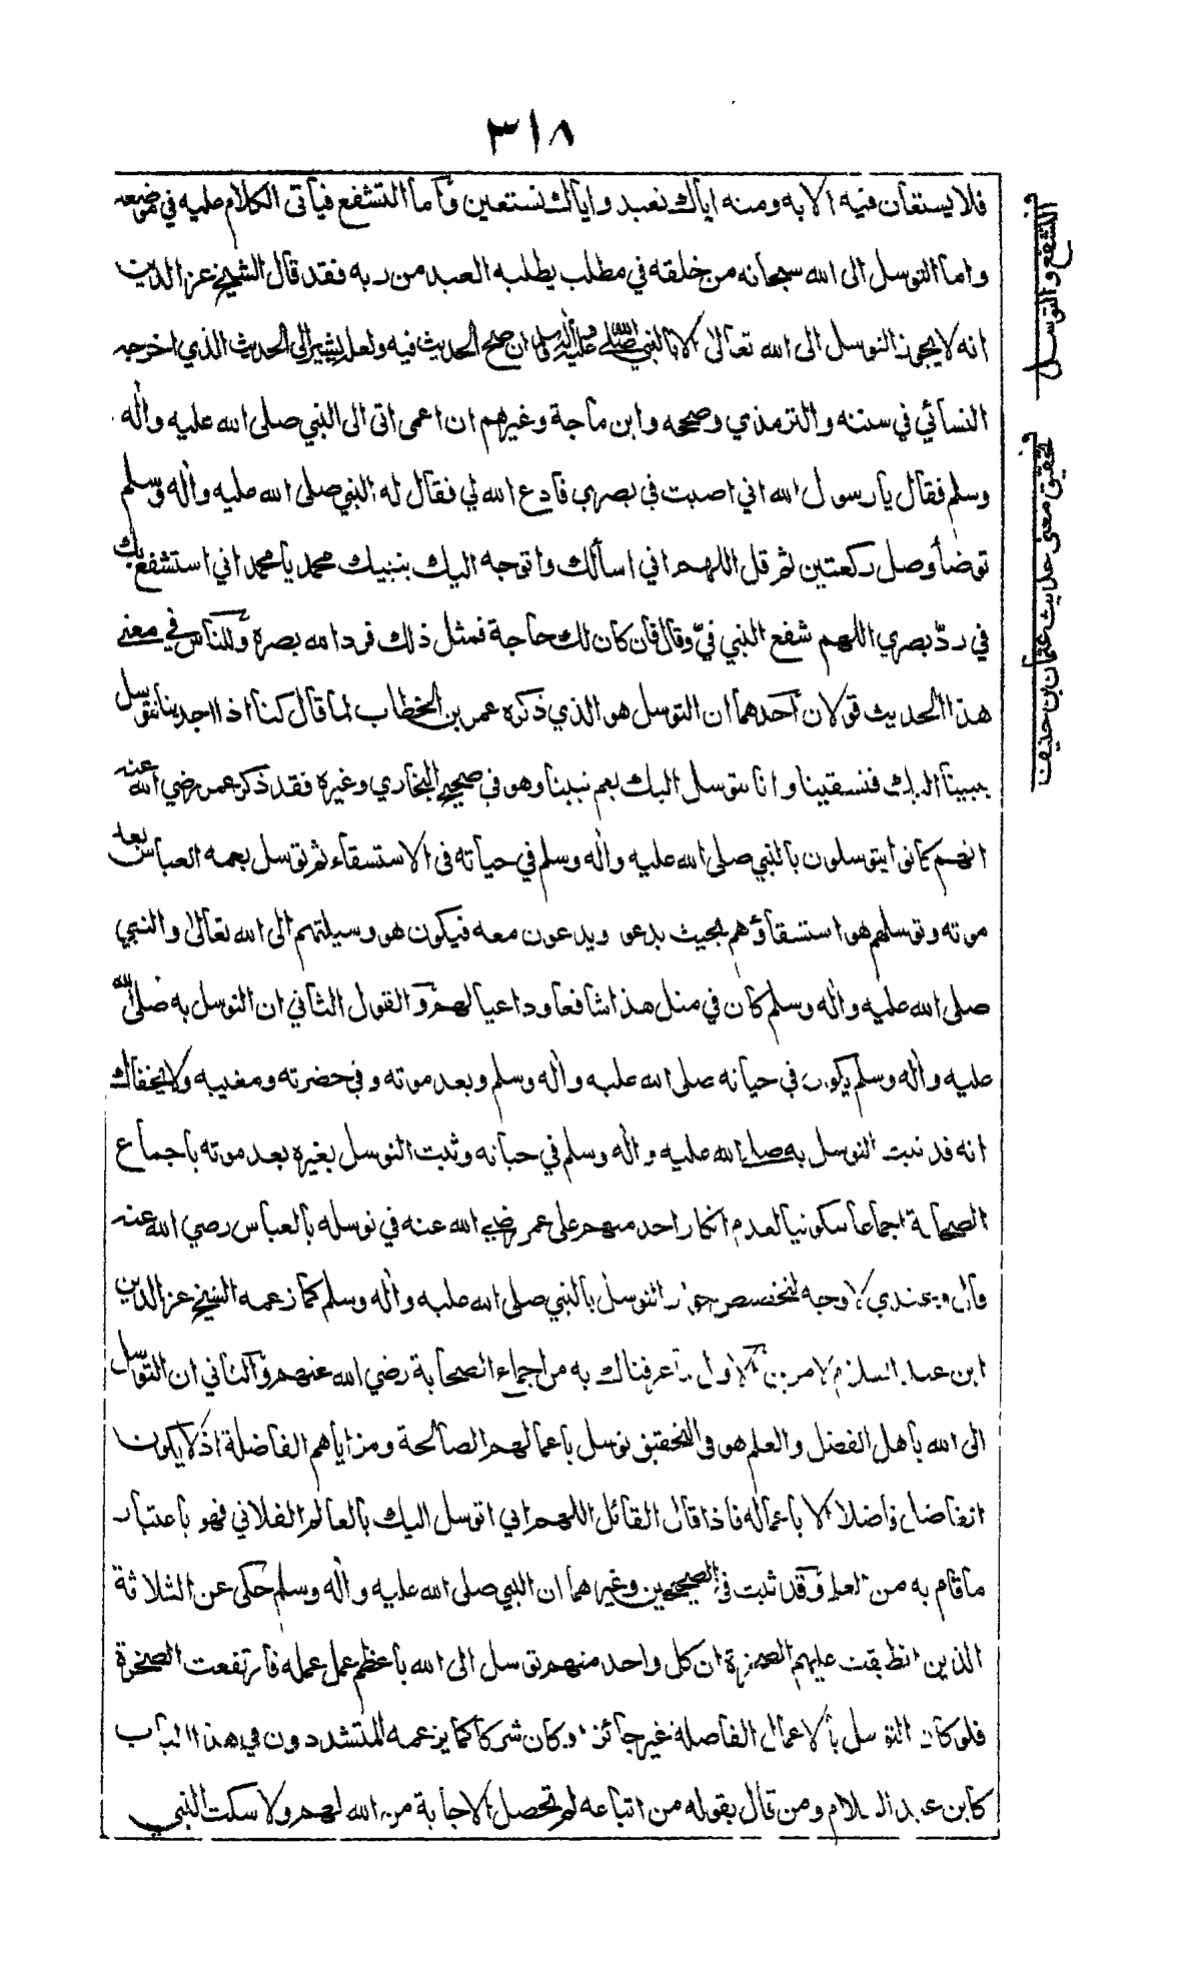 ٣١٨
فلا يستعان فيه الا به ومنه اياك نعبد واياك نستعين وأما التشفع فيأتى الكلام عليه في موضعه
واما التوسل الى الله سبحانه من خلقه في مطلب يطلبه العبد من ربه فقد قال الشيخ عز الدين
انه لا يجوز التوسل الى الله تعالى الا بالنبي صلى الله عليه وآله وسلم ان صح الحديث فيه ولعله يشير الى الحديث الذي اخرجه
النسائي في سننه والترمذي وصححه وابن ماجة وغيرهم ان اعمى اتى الى النبي صلى الله عليه وآله
وسلم فقال يا رسول الله اني اصبت في بصري فادع الله لي فقال له النبي صلى الله عليه وآله وسلم
توضأ وصل ركعتين ثم قل اللهم اني اسألك واتوجه اليك بنبيك محمد يا محمد اني استشفع بك
في ردّ بصري اللهم شفع النبي فيّ وقال فان كان لك حاجة فمثل ذلك فرد الله بصره وللناس في معنى
هذا الحديث قولان أحدهما ان التوسل هو الذي ذكره عمر بن الخطاب لما قال كنا اذا اجدبنا نتوسل
بنبينا اليك فتسقينا وانا نتوسل اليك بعم نبينا وهو في صحيح البخاري وغيره فقد ذكر عمر رضي الله عنه
انهم كانوا يتوسلون بالنبي صلى الله عليه وآله وسلم في حياته في الاستسقاء ثم توسل بعمه العباس بعد
موته وتوسلهم هو استسقاؤهم بحيث يدعو ويدعون معه فيكون هو وسيلتهم الى الله تعالى والنبي
صلى الله عليه وآله وسلم كان في مثل هذا شافعا وداعيا لهم والقول الثاني ان التوسل به صلى الله
عليه وآله وسلم يكون في حياته صلى الله عليه وآله وسلم وبعد موته وفي حضرته ومغيبه ولا يخفاك
انه قد ثبت التوسل به صلى الله عليه وآله وسلم في حياته وثبت التوسل بغيره بعد موته باجماع
الصحابة اجماعا سكوتيا لعدم انكار احد منهم على عمر رضي الله عنه في توسله بالعباس رضي الله عنه
قال وعندي لا وجه لتخصيص جواز التوسل بالنبي صلى الله عليه وآله وسلم كما زعمه الشيخ عز الدين
ابن عبد السلام لامرين الاول ما عرفناك به من اجماع الصحابة رضي الله عنهم والثاني ان التوسل
الى الله باهل الفضل والعلم هو في التحقيق توسل باعمالهم الصالحة ومزاياهم الفاضلة اذ لا يكون
الفاضل فاضلا الا باعماله فاذا قال القائل اللهم اني اتوسل اليك بالعالم الفلاني فهو باعتبار
ما قام به من العلم وقد ثبت في الصحيحين وغيرهما ان النبي صلى الله عليه وآله وسلم حكى عن الثلاثة
الذين انطبقت عليهم الصخرة ان كل واحد منهم توسل الى الله باعظم عمل عمله فارتفعت الصخرة
فلو كان التوسل بالاعمال الفاضلة غير جائز او كان شركا كما يزعمه المتشددون في هذا الباب
كابن عبد السلام ومن قال بقوله من اتباعه لم تحصل الاجابة من الله لهم ولا سكت النبي
التشفع والتوسل
تحقيق معنى حديث عثمان بن حنيف